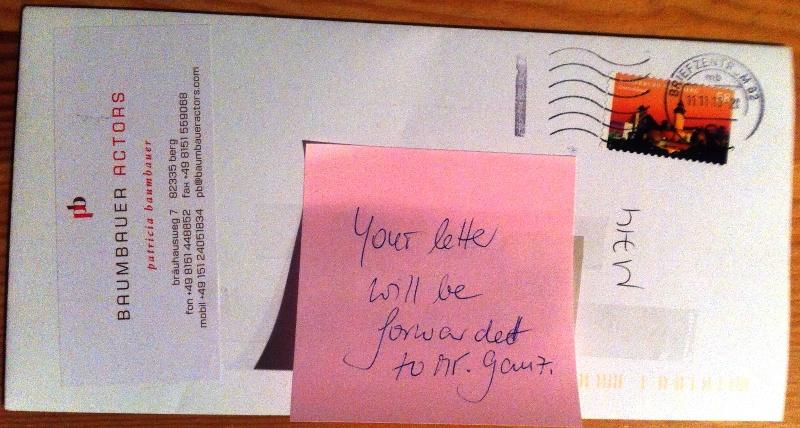 pb
BAUMBAUER ACTORS
patricia baumbauer
bräuhausweg 7 82335 berg
fon +49 8151 448852 fax +49 8151 559068
mobil +49 151 24051834 pb@baumbaueractors.com
BRIEFZENTR M 82
mb
11.11.13
Your letter
will be
forwarded
to Mr. Ganz.